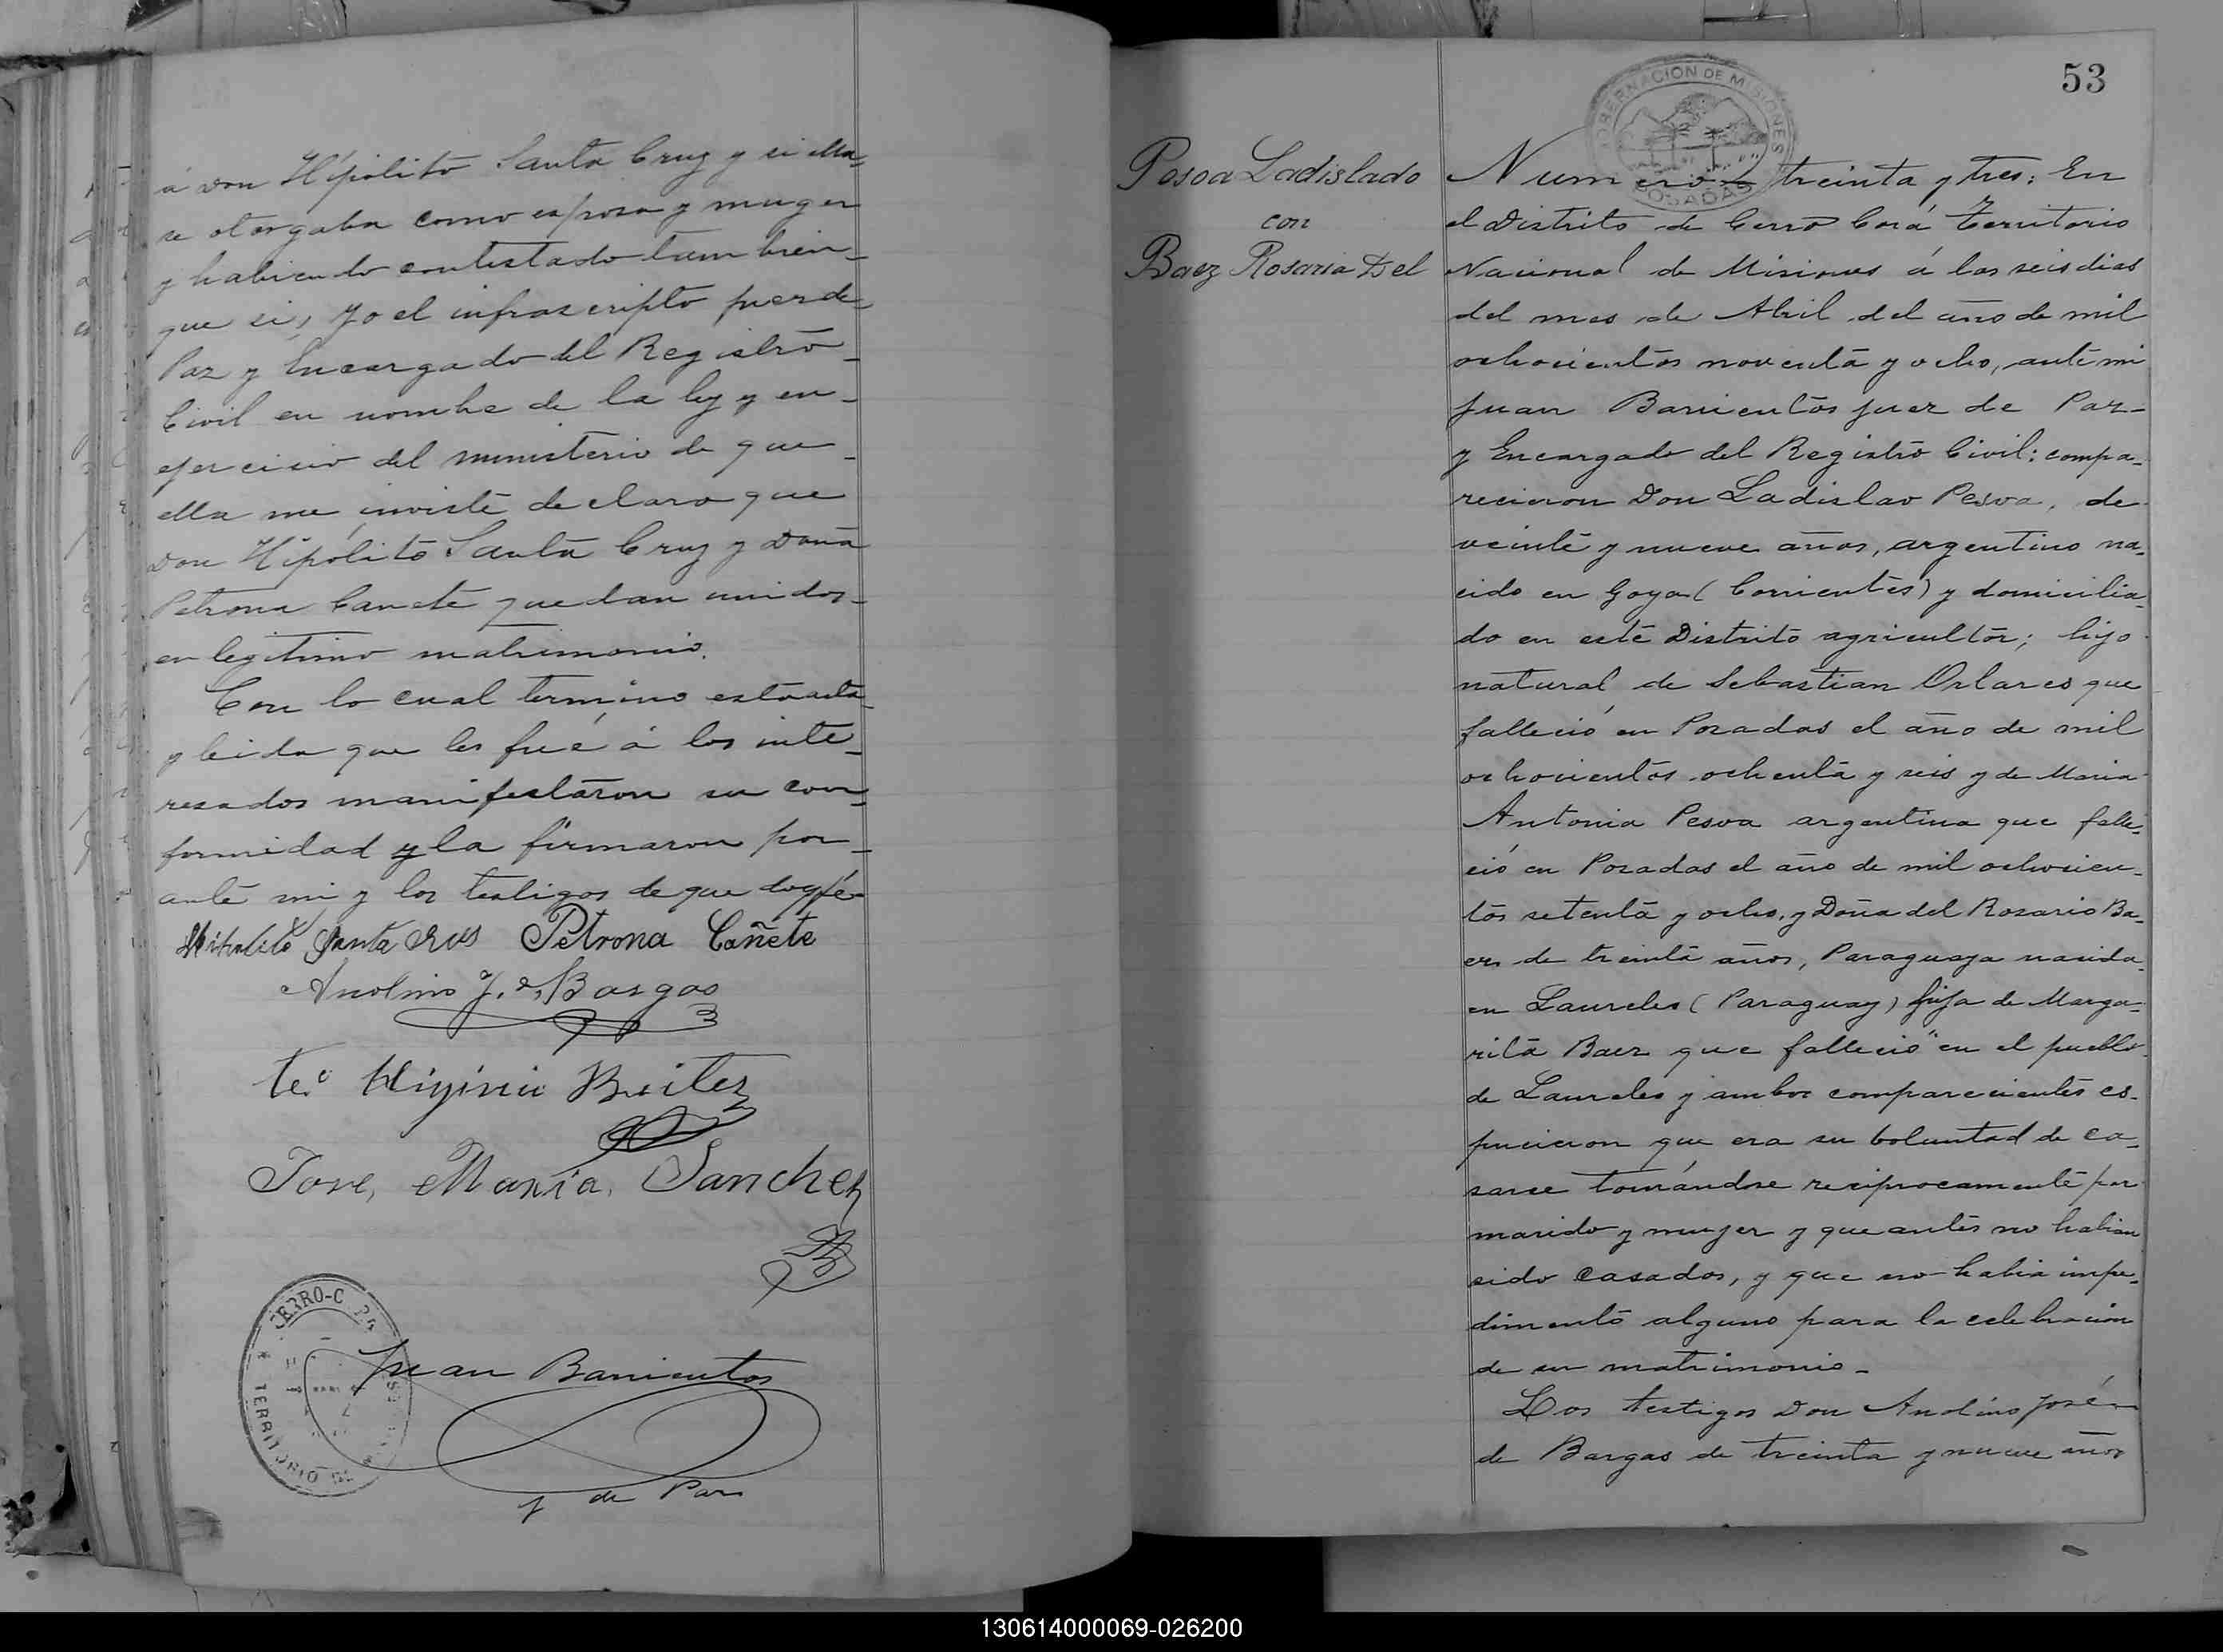 á Don Hipólito Santa Cruz y si ella
se otorgaba como esposa y muger
y habiendo contestado tambien
que si, Yo el infrascripto juez de
Paz y Encargado del Registro
Civil en nombre de la ley y en
ejercicio del ministerio de que
ella me inviste declaro que
Don Hipólito Santa Cruz y Doña
Petrona Cañete quedan unidos
en legitimo matrimonio.
Con lo cual termino esta acta
y leida que les fué á los inte-
resados manifestaron su con-
formidad y la firmaron por
ante mi y los testigos de que doy fé
Hipolito Santa Crus Petrona Cañete
Anolino J. de Bargas
te.º Higinio Benitez
Jose, Maria, Sanchez
CERRO-CORA
TERRITORIO DE
Juan Barrientos
J de Paz
53
GOBERNACION DE MISIONES
POSADAS
Posoa Ladislado
con
Baez Rosario Del
Numero treinta y tres: En
el Distrito de Cerro Corá territorio
Nacional de Misiones á los seis dias
del mes de Abril del año de mil
ochocientos noventa y ocho, ante mi
Juan Barrientos juez de Paz
y Encargado del Registro Civil: compa-
recieron Don Ladislao Pesoa, de
veinte y nueve años, argentino na-
cido en Goya (Corrientes) y domicilia-
do en este Distrito agricultor; hijo
natural de Sebastian que
falleció en Pozadas el año de mil
ochocientos ochenta y seis y de Maria
Antonia Pesoa argentina que falle-
ció en Pozadas el año de mil ochocien-
tos setenta y ocho, y Doña del Rosario Ba-
ez de treinta años, Paraguaya nacida
en Laureles (Paraguay) hija de Marga-
rita Baez que falleció en el pueblo
de Laureles y ambos comparecientes es-
pucieron que era su boluntad de ca-
sarse tomándose reciprocamente por
marido y mujer y que antes no habian
sido casados, y que no habia impe-
dimento alguno para la celebracion
de su matrimonio
Los testigos Don Anolino José
de Bargas de treinta y nueve años
130614000069-026200